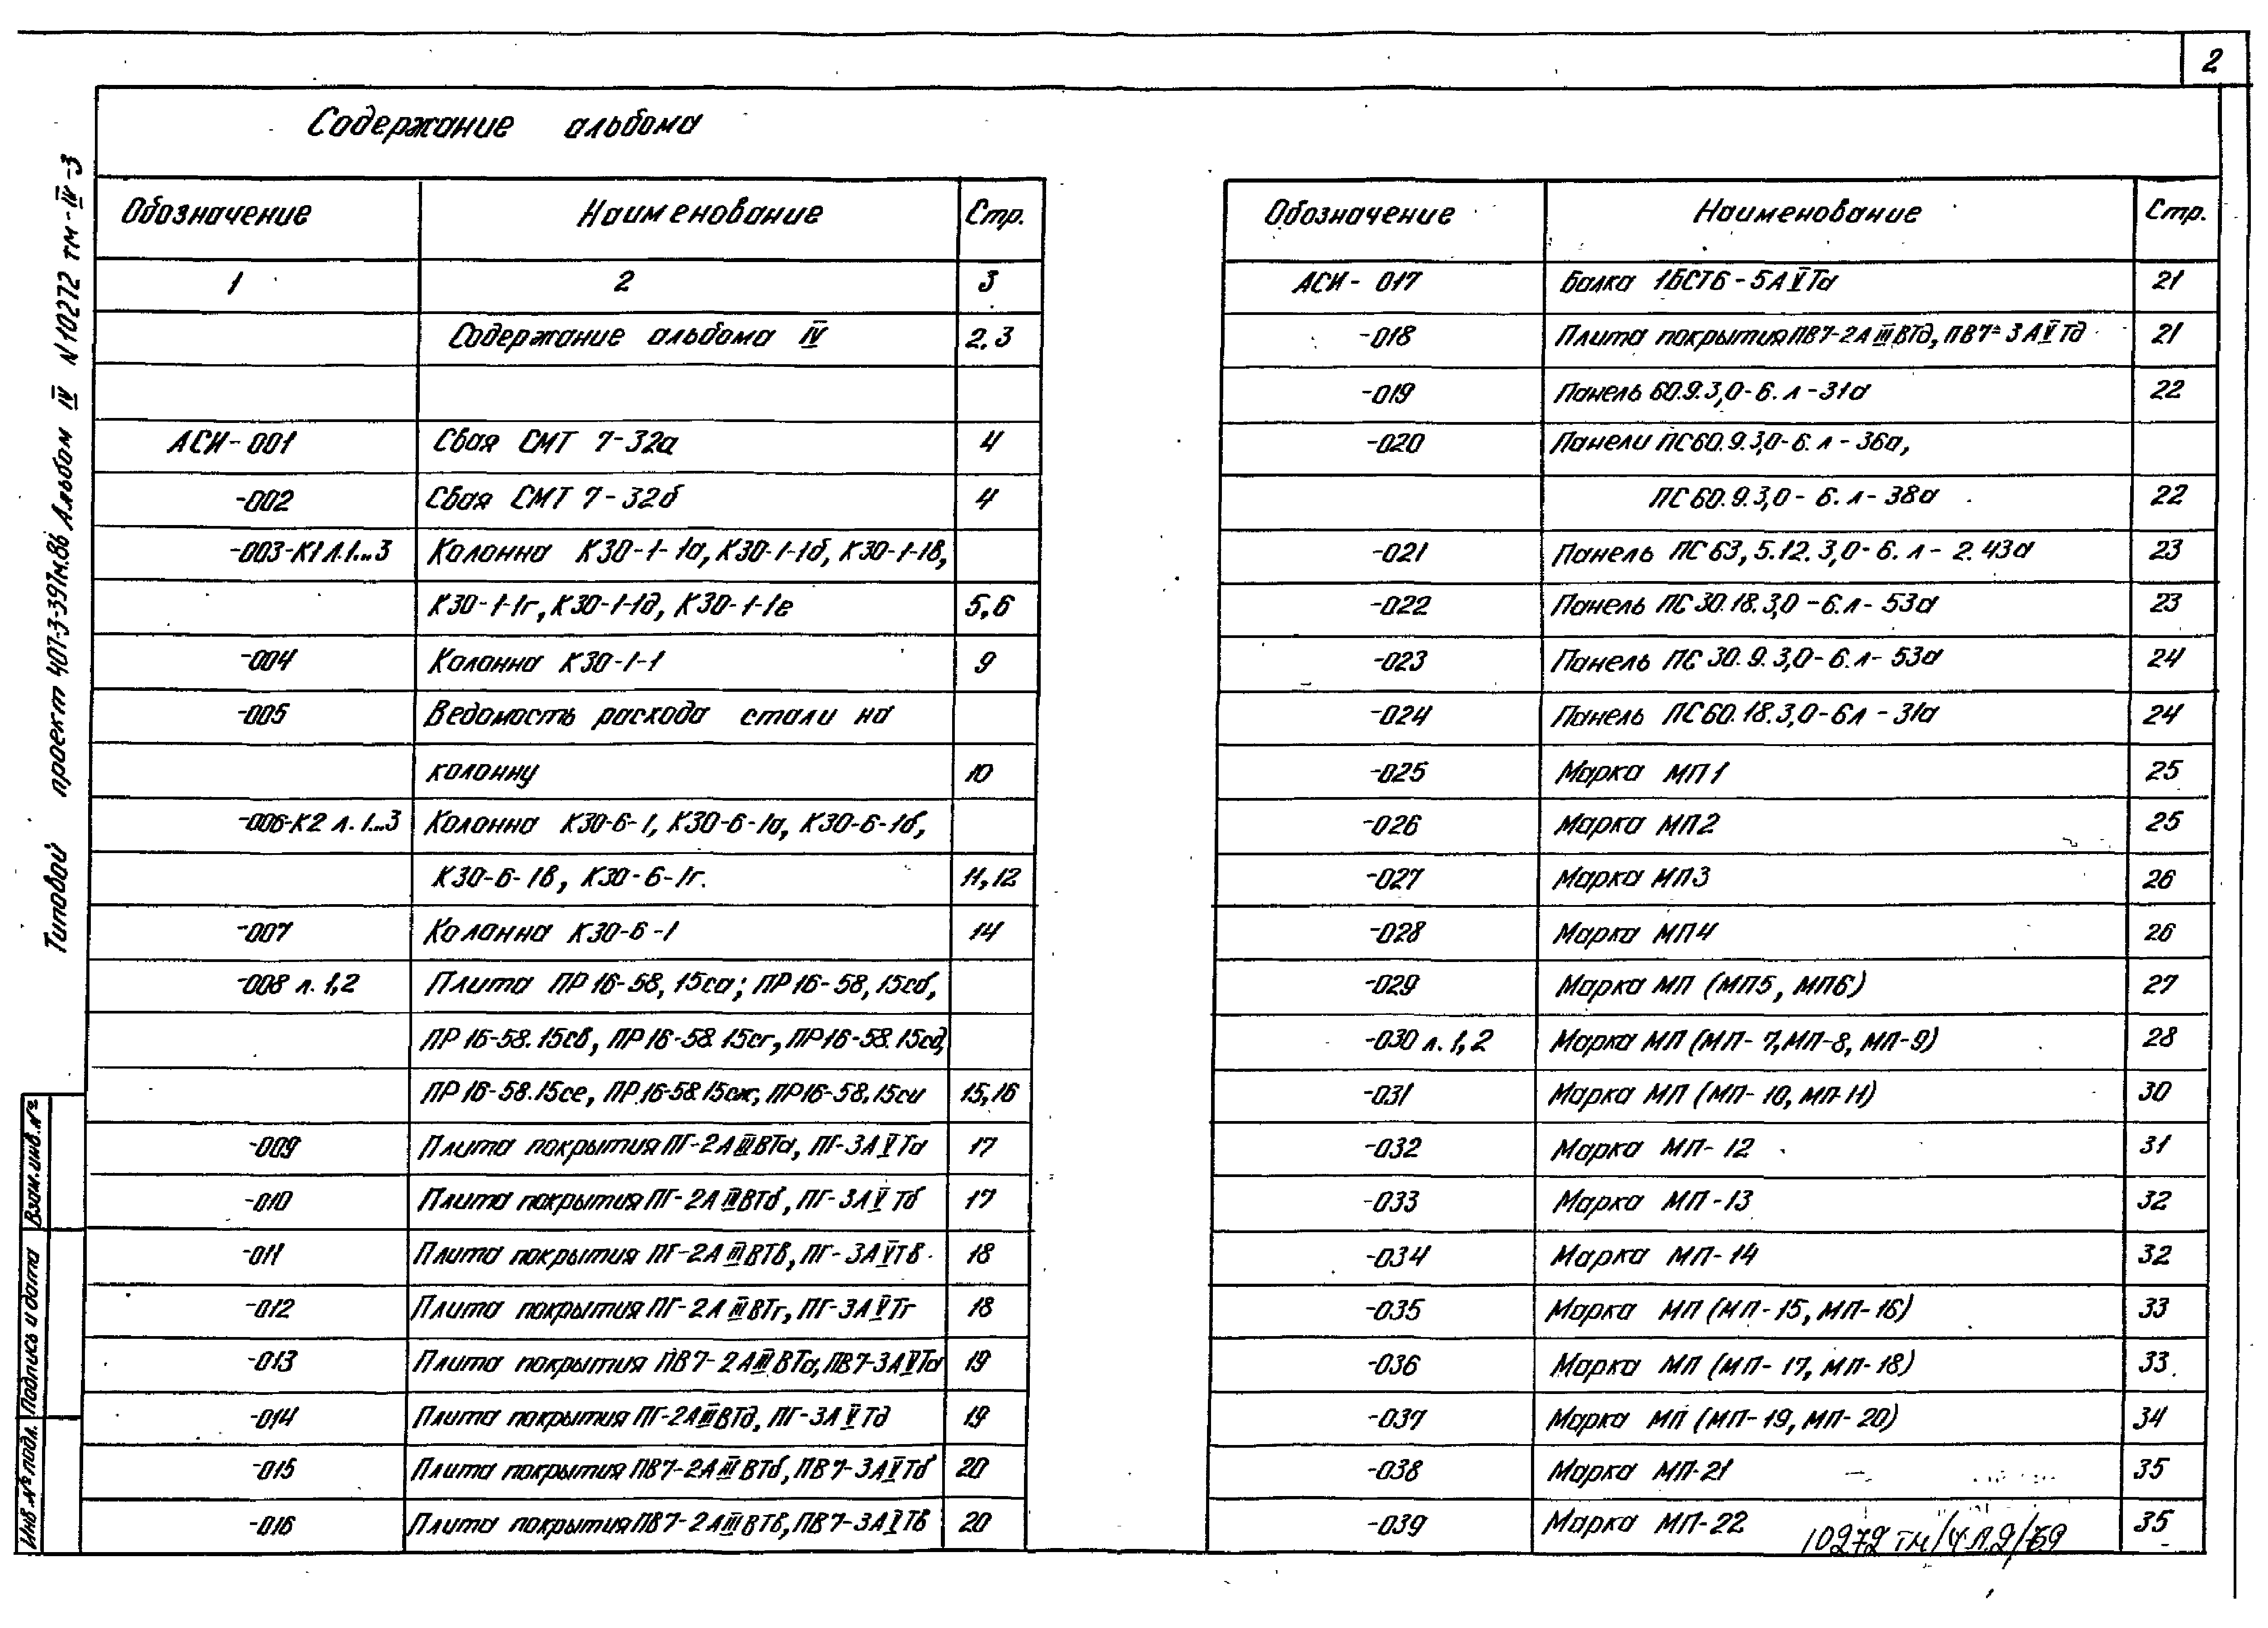 2
Содержание альбома
Обозначение Наименование Стр.
1 2 3
Содержание альбома IV 2.3
АСИ-001 Свая СМТ 7-32а 4
-002 Свая СМТ 7-32б 4
-003-К1 Л.1...3 Колонна К30-1-1а, К30-1-1б, К30-1-1в,
К30-1-1г, К30-1-1д, К30-1-1е 5,6
-004 Колонна К30-1-1 9
-005 Ведомость расхода стали на
колонну 10
-006-К2 л. 1...3 Колонна К30-6-1, К30-6-1а, К30-6-1б,
К30-6-1в, К30-6-1г. 11,12
-007 Колонна К30-6-1 14
-008 л. 1,2 Плита ПР16-58,15са; ПР16-58,15сб,
ПР16-58.15св, ПР16-58.15сг, ПР16-58.15сд,
ПР16-58.15се, ПР16-58.15сж, ПР16-58.15си 15,16
-009 Плита покрытия ПГ-2АIIIВТа, ПГ-3АVТа 17
-010 Плита покрытия ПГ-2АIIIВТб, ПГ-3АVТб 17
-011 Плита покрытия ПГ-2АIIIВТв, ПГ-3АVТв 18
-012 Плита покрытия ПГ-2АIIIВТг, ПГ-3АVТг 18
-013 Плита покрытия ПВ7-2АIIIВТа, ПВ7-3АVТа 19
-014 Плита покрытия ПГ-2АIIIВТд, ПГ-3АVТд 19
-015 Плита покрытия ПВ7-2АIIIВТб, ПВ7-3АVТб 20
-016 Плита покрытия ПВ7-2АIIIВТв, ПВ7-3АVТв 20
Обозначение Наименование Стр.
АСИ-017 Балка 1БСТ6-5АVТа 21
-018 Плита покрытия ПВ7-2АIIIВТд, ПВ7-3АVТд 21
-019 Панель 60.9.3,0-6.л-31а 22
-020 Панели ПС60.9.3,0-6.л-36а,
ПС60.9.3,0-6.л-38а 22
-021 Панель ПС63,5.12.3,0-6.л-2.43а 23
-022 Панель ПС30.18.3,0-6.л-53а 23
-023 Панель ПС30.9.3,0-6.л-53а 24
-024 Панель ПС60.18.3,0-6л-31а 24
-025 Марка МП1 25
-026 Марка МП2 25
-027 Марка МП3 26
-028 Марка МП4 26
-029 Марка МП (МП5, МП6) 27
-030 л.1,2 Марка МП (МП-7, МП-8, МП-9) 28
-031 Марка МП (МП-10, МП-11) 30
-032 Марка МП-12 31
-033 Марка МП-13 32
-034 Марка МП-14 32
-035 Марка МП (МП-15, МП-16) 33
-036 Марка МП (МП-17, МП-18) 33
-037 Марка МП (МП-19, МП-20) 34
-038 Марка МП-21 35
-039 Марка МП-22 35
Типовой проект 407-3-397м.86 Альбом IV N10272 тм-IV-3
Взам.инв.№
Подпись и дата
Инв.№ подл.
10272 тм/4 л.2/